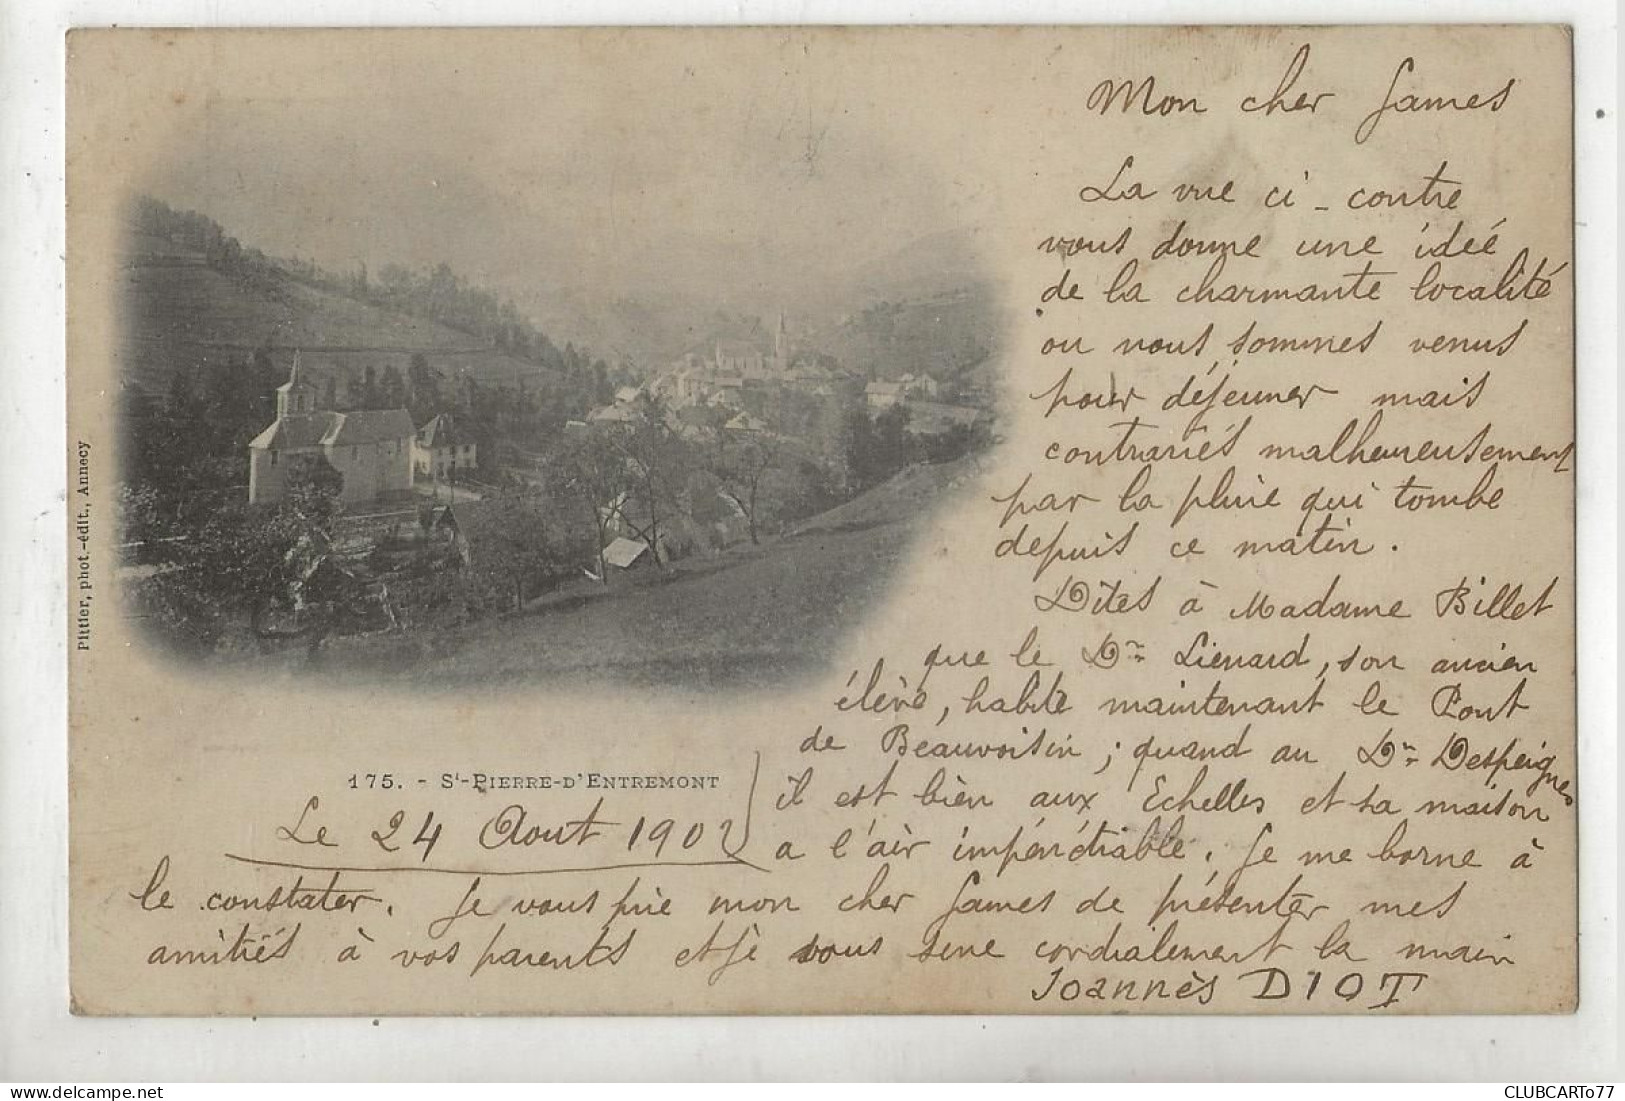 Mon cher James
La vue ci-contre
vous donne une idée
de la charmante localité
ou nous sommes venus
pour déjeuner mais
contrariés malheureusement
par la pluie qui tombe
depuis ce matin.
Dîtes à Madame Billet
que le Dr Lienard, son ancien
élève, habite maintenant le Pont
de Beauvoisin ; quand au Dr Despeignes
il est bien aux Echelles et sa maison
a l'air impénétrable. Je me borne à
le constater. Je vous prie mon cher James de présenter mes
amitiés à vos parents et je vous serre cordialement la main
Joannès DIOT
175. - St-PIERRE-D'ENTREMONT
Le 24 Aout 1902
Pittier, phot.-édit., Annecy
CLUBCARTo77